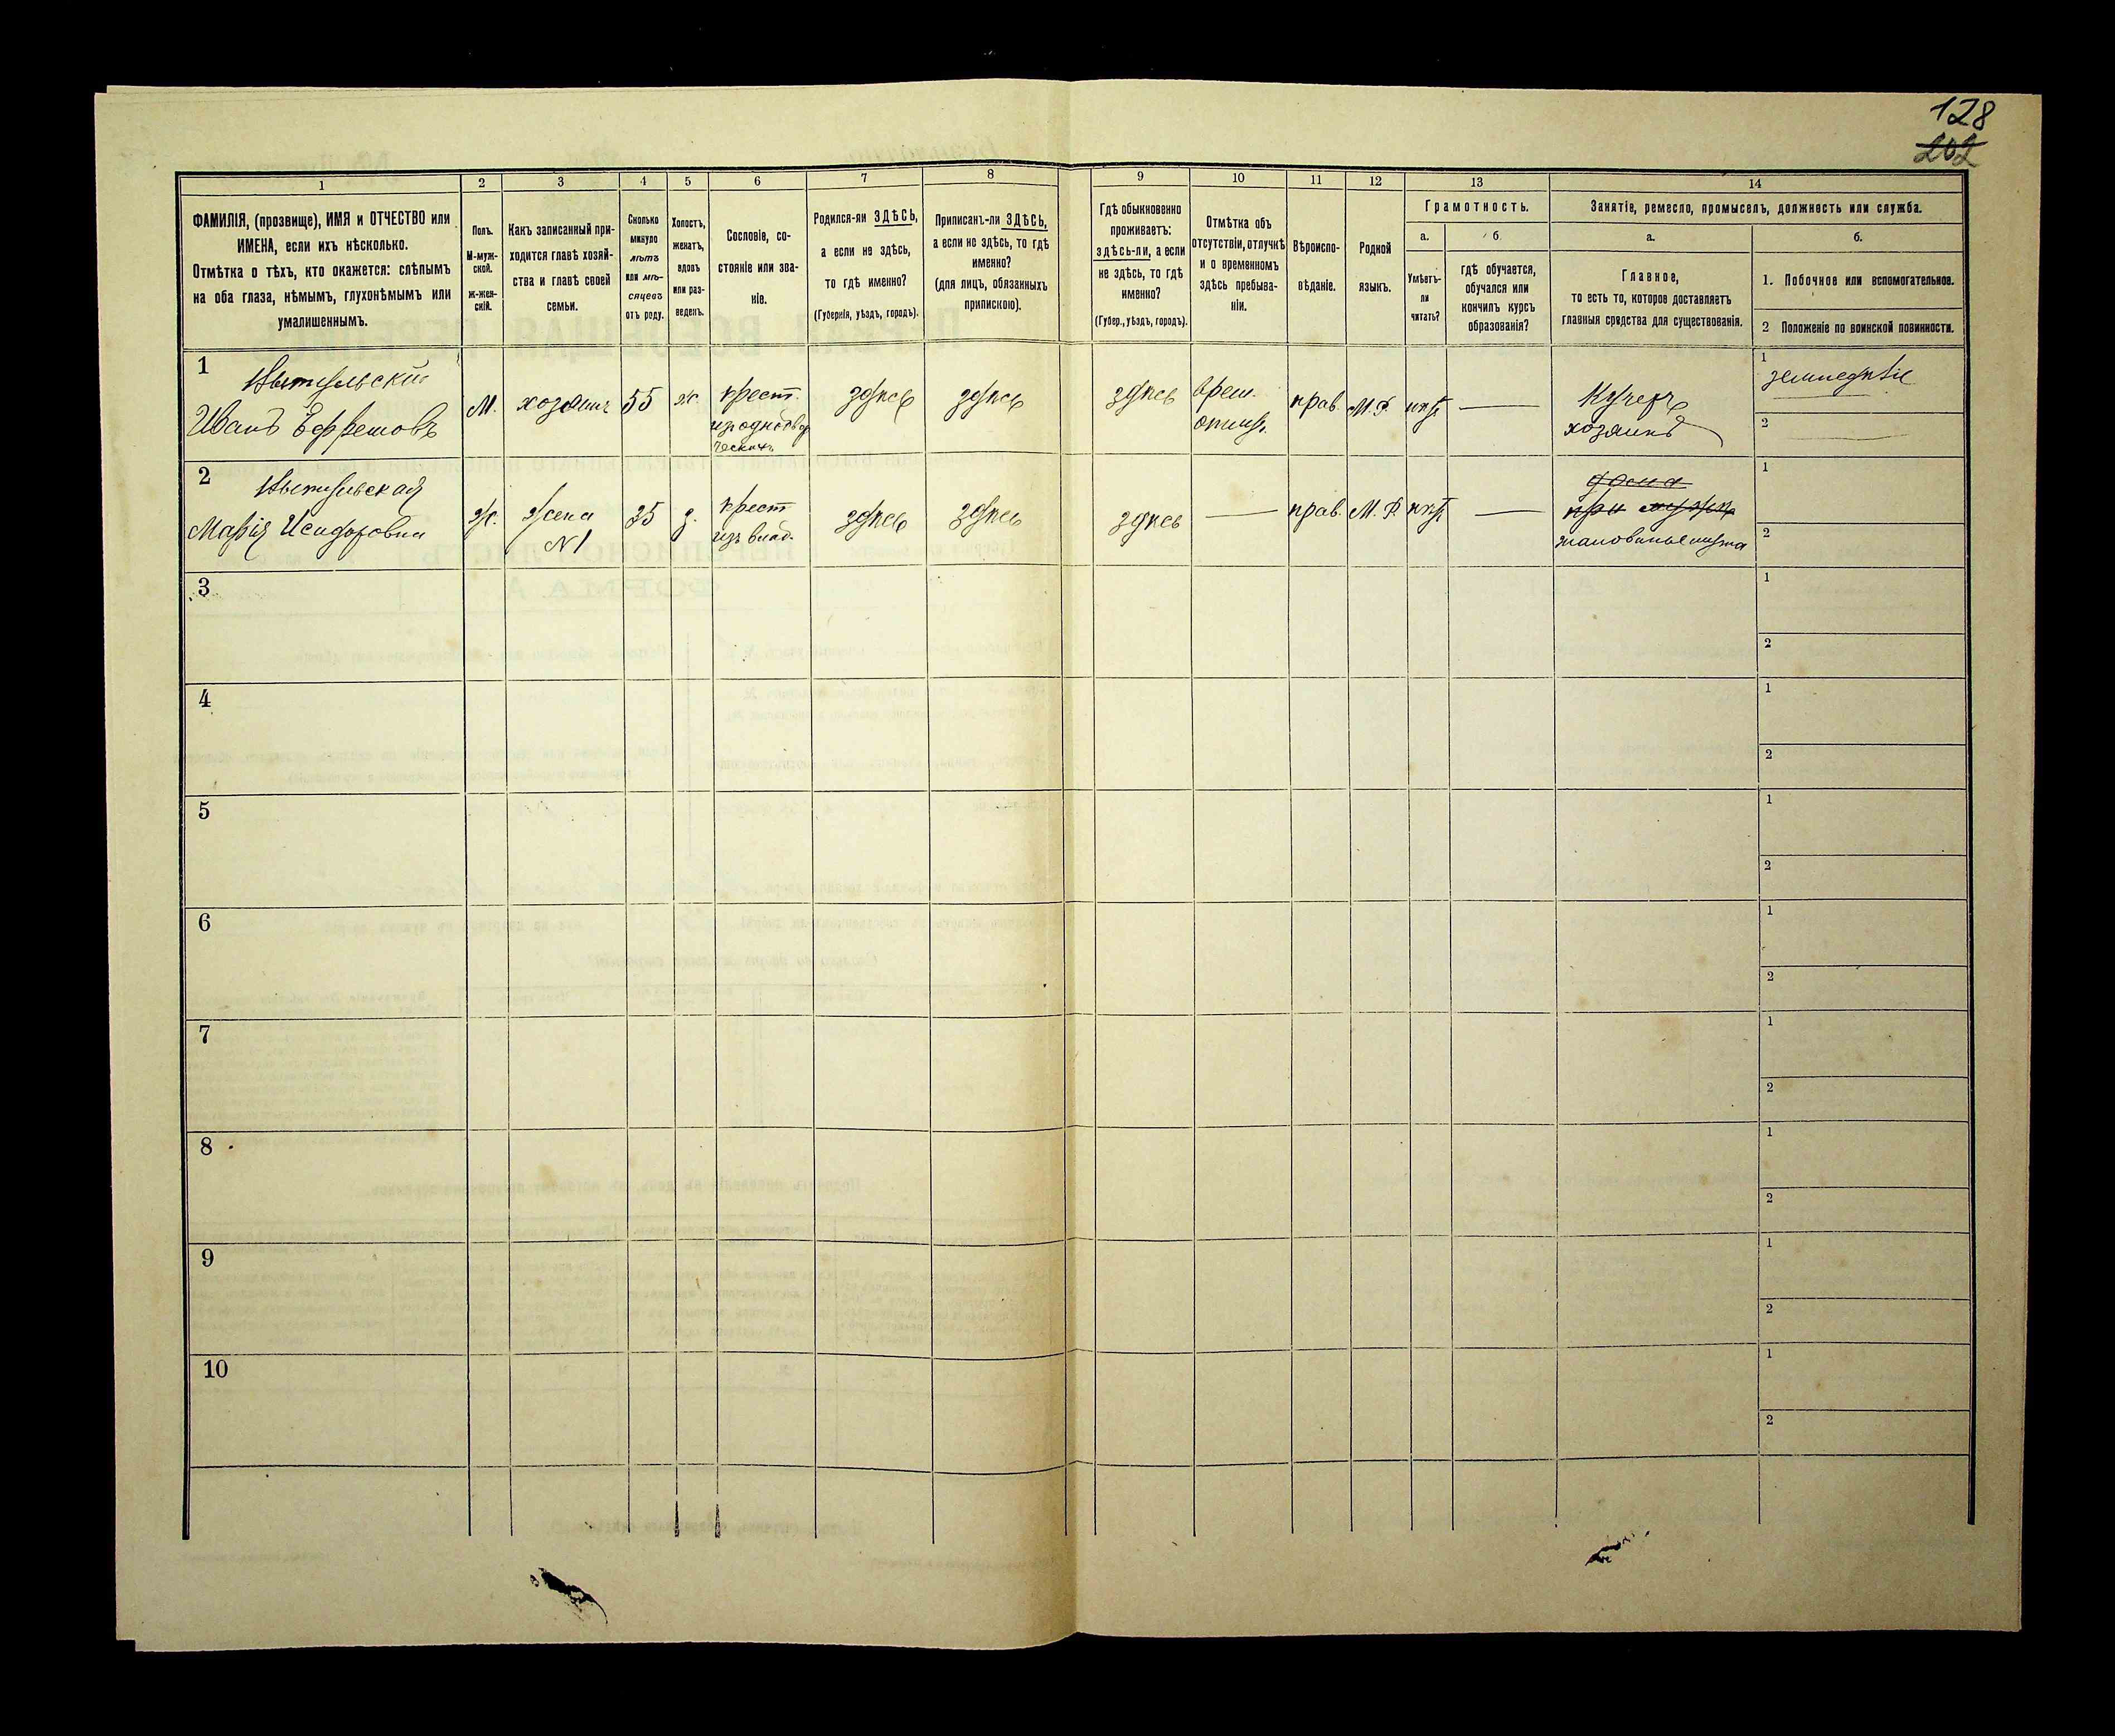 128
202
1
2
3
4
5
6
7
8
9
10
11
12
13
14
ФАМИЛІЯ, (прозвище), ИМЯ и ОТЧЕСТВО или
ИМЕНА, если ихъ нѣсколько.
Отмѣтка о тѣхъ, кто окажется: слѣпымъ
на оба глаза, нѣмымъ, глухонѣмымъ или
умалишеннымъ.
Полъ.
М-муж-
ской.
ж-жен-
скій.
Какъ записанный при-
ходится главѣ хозяй-
ства и главѣ своей
семьи.
Сколько
минуло
лѣтъ
или мѣ-
сяцевъ
отъ роду.
Холостъ,
женатъ,
вдовъ
или раз-
веденъ.
Сословіе, со-
стояніе или зва-
ніе.
Родился-ли ЗДѢСЬ,
а если не здѣсь,
то гдѣ именно?
(Губернія, уѣздъ, городъ).
Приписанъ-ли ЗДѢСЬ,
а если не здѣсь, то гдѣ
именно?
(для лицъ, обязанныхъ
припискою).
Гдѣ обыкновенно
проживаетъ:
здѣсь-ли, а если
не здѣсь, то гдѣ
именно?
(Губер., уѣздъ, городъ).
Отмѣтка объ
отсутствіи, отлучкѣ
и о временномъ
здѣсь пребыва-
ніи.
Вѣроиспо-
вѣданіе.
Родной
языкъ.
Грамотность.
а.
б.
Умѣетъ-
ли
читать?
гдѣ обучается,
обучался или
кончилъ курсъ
образованія?
Занятіе, ремесло, промыселъ, должность или служба.
а.
б.
Главное,
то есть то, которое доставляетъ
главныя средства для существованія.
1. Побочное или вспомогательное.
2 Положеніе по воинской повинности.
1
Иванъ Ефремовъ
М.
хозяинъ
55
ж.
крест.
здѣсь
здѣсь
здѣсь
врем.
отлуч.
прав.
М.Р.
нѣт
Кучеръ
хозяинъ
1
земледѣліе
2
2
Марія Исидоровна
Ж.
Жена
N 1
35
з.
крест
изъ влад.
здѣсь
здѣсь
здѣсь
прав.
М. Р.
нѣт
дома
при мужѣ
1
2
3
1
2
4
1
2
5
1
2
6
1
2
7
1
2
8
1
2
9
1
2
10
1
2